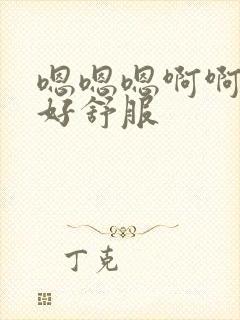 嗯嗯嗯啊啊
好舒服
丁克